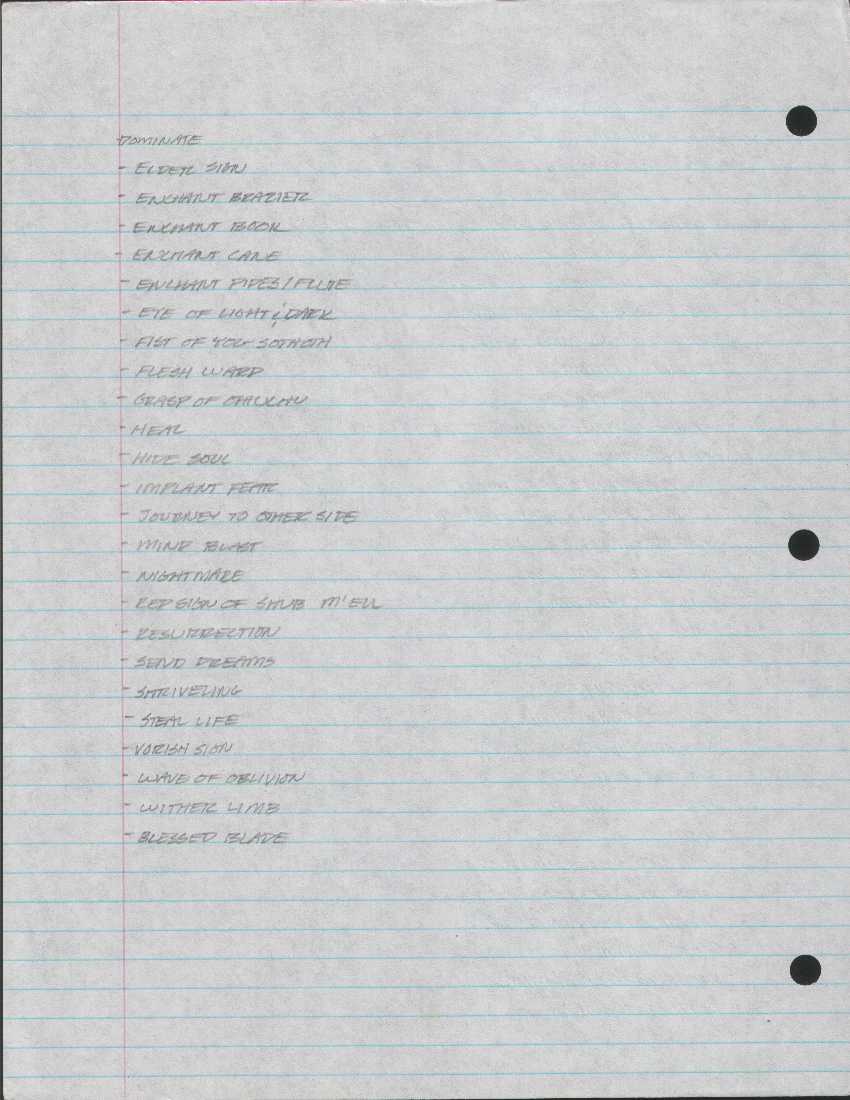 -DOMINATE
- ELDER SIGN
- ENCHANT BRAZIER
- ENCHANT BOOK
- ENCHANT CANE
- ENCHANT PIPES/FLUTE
- EYE OF LIGHT & DARK
- FIST OF YOG-SOTHOTH
- FLESH WARD
- GRASP OF CTHULHU
- HEAL
- HIDE SOUL
- IMPLANT FEAR
- JOURNEY TO OTHER SIDE
- MIND BLAST
- NIGHTMARE
- RED SIGN OF SHUB M'ELL
- RESURRECTION
- SEND DREAMS
- SHRIVELING
- STEAL LIFE
- VOORISH SIGN
- WAVE OF OBLIVION
- WITHER LIMB
- BLESSED BLADE